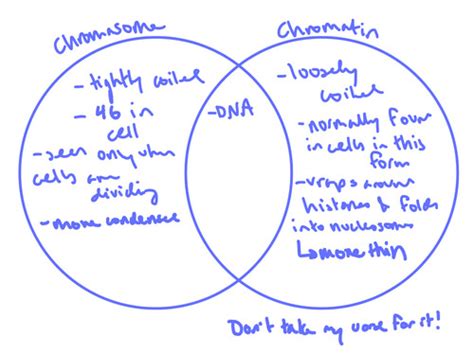 Chromosome
Chromatin
- tightly coiled
- 46 in
cell
- seen only when
cells are
dividing
- more condensed
- DNA
- loosely
coiled
- normally found
in cells in this
form
- wraps around
histones & folds
into nucleosomes
↳ more thin
Don't take my word for it!